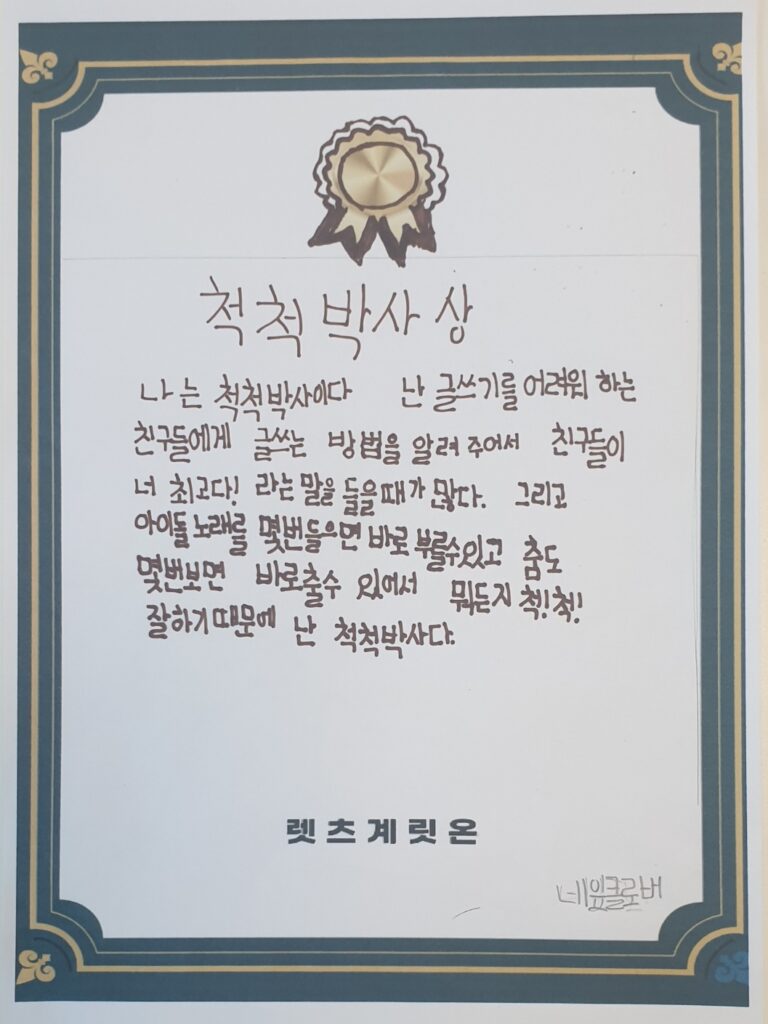 척척박사 상
나는 척척박사이다 난 글쓰기를 어려워 하는
친구들에게 글쓰는 방법을 알려 주어서 친구들이
너 최고다! 라는 말을 들을 때가 많다. 그리고
아이돌 노래를 몇번들으면 바로 부를수있고 춤도
몇번보면 바로출수 있어서 뭐든지 척! 척!
잘하기 때문에 난 척척박사다.
렛츠계릿온
네잎클로버